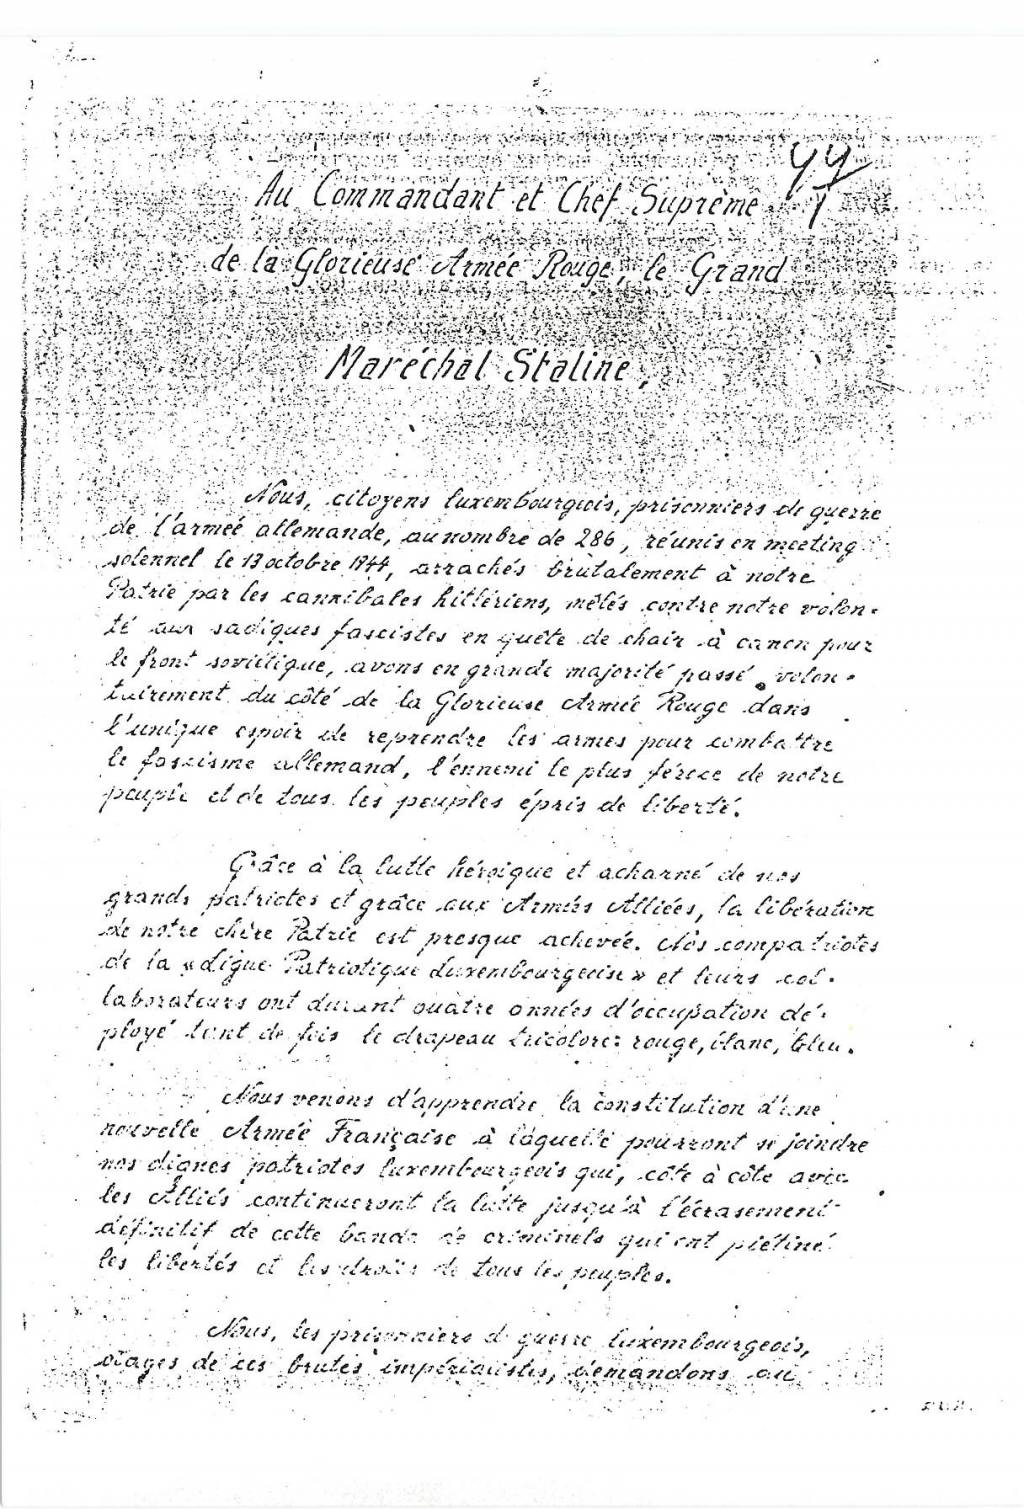 Au Commandant et Chef Suprême
de la Glorieuse Armée Rouge, le Grand
Maréchal Staline,
Nous, citoyens luxembourgeois, prisonniers de guerre
de l'armée allemande, au nombre de 286, réunis en meeting
solennel le 13 octobre 1944, arrachés brutalement à notre
Patrie par les cannibales hitlériens, mêlés contre notre volon-
té aux sadiques fascistes en quête de chair à canon pour
le front soviétique, avons en grande majorité passé volon-
tairement du côté de la Glorieuse Armée Rouge dans
l'unique espoir de reprendre les armes pour combattre
le fascisme allemand, l'ennemi le plus féroce de notre
peuple et de tous les peuples épris de liberté.
Grâce à la lutte héroique et acharné de nos
grands patriotes et grâce aux Armées Alliées, la libération
de notre chère Patrie est presque achevée. Nos compatriotes
de la «Ligue Patriotique Luxembourgeise» et leurs col-
laborateurs ont durant quatre années d'occupation dé-
ployé tant de fois le drapeau tricolore: rouge, blanc, bleu.
Nous venons d'apprendre la constitution d'une
nouvelle Armée Française à laquelle pourront se joindre
nos dignes patriotes luxembourgeois qui, côte à côte avec
les Alliés continueront la lutte jusqu'à l'écrasement
définitif de cette bande de criminels qui ont piétiné
les libertés et les droits de tous les peuples.
Nous, les prisonniers de guerre luxembourgeois,
otages de ces brutes impérialistes, demandons au